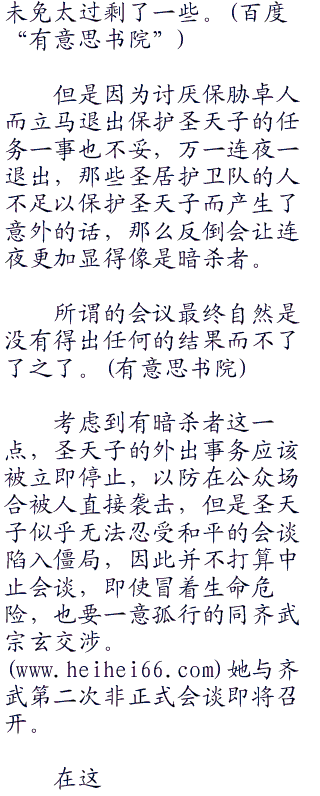 未免太过剩了一些。(百度
“有意思书院”)
但是因为讨厌保胁卓人
而立马退出保护圣天子的任
务一事也不妥，万一连夜一
退出，那些圣居护卫队的人
不足以保护圣天子而产生了
意外的话，那么反倒会让连
夜更加显得像是暗杀者。
所谓的会议最终自然是
没有得出任何的结果而不了
了之了。(有意思书院)
考虑到有暗杀者这一
点，圣天子的外出事务应该
被立即停止，以防在公众场
合被人直接袭击，但是圣天
子似乎无法忍受和平的会谈
陷入僵局，因此并不打算中
止会谈，即使冒着生命危
险，也要一意孤行的同齐武
宗玄交涉。
(www.heihei66.com)她与齐
武第二次非正式会谈即将召
开。
在这